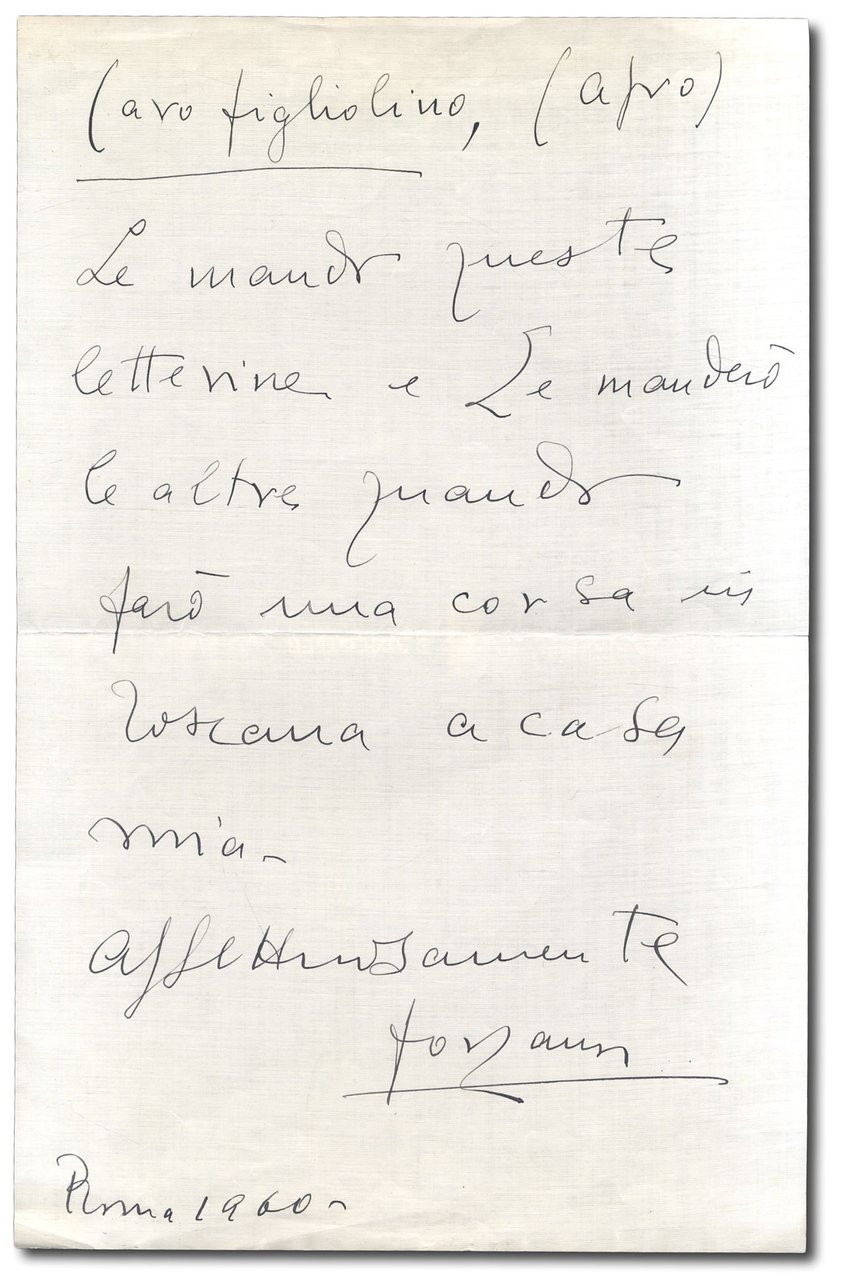 Caro figliolino, (Afro)
Le mando queste
letterine e Le manderò
le altre quando
farò una corsa in
Toscana a casa
mia -
Affettuosamente
Forzano
Roma 1960 -